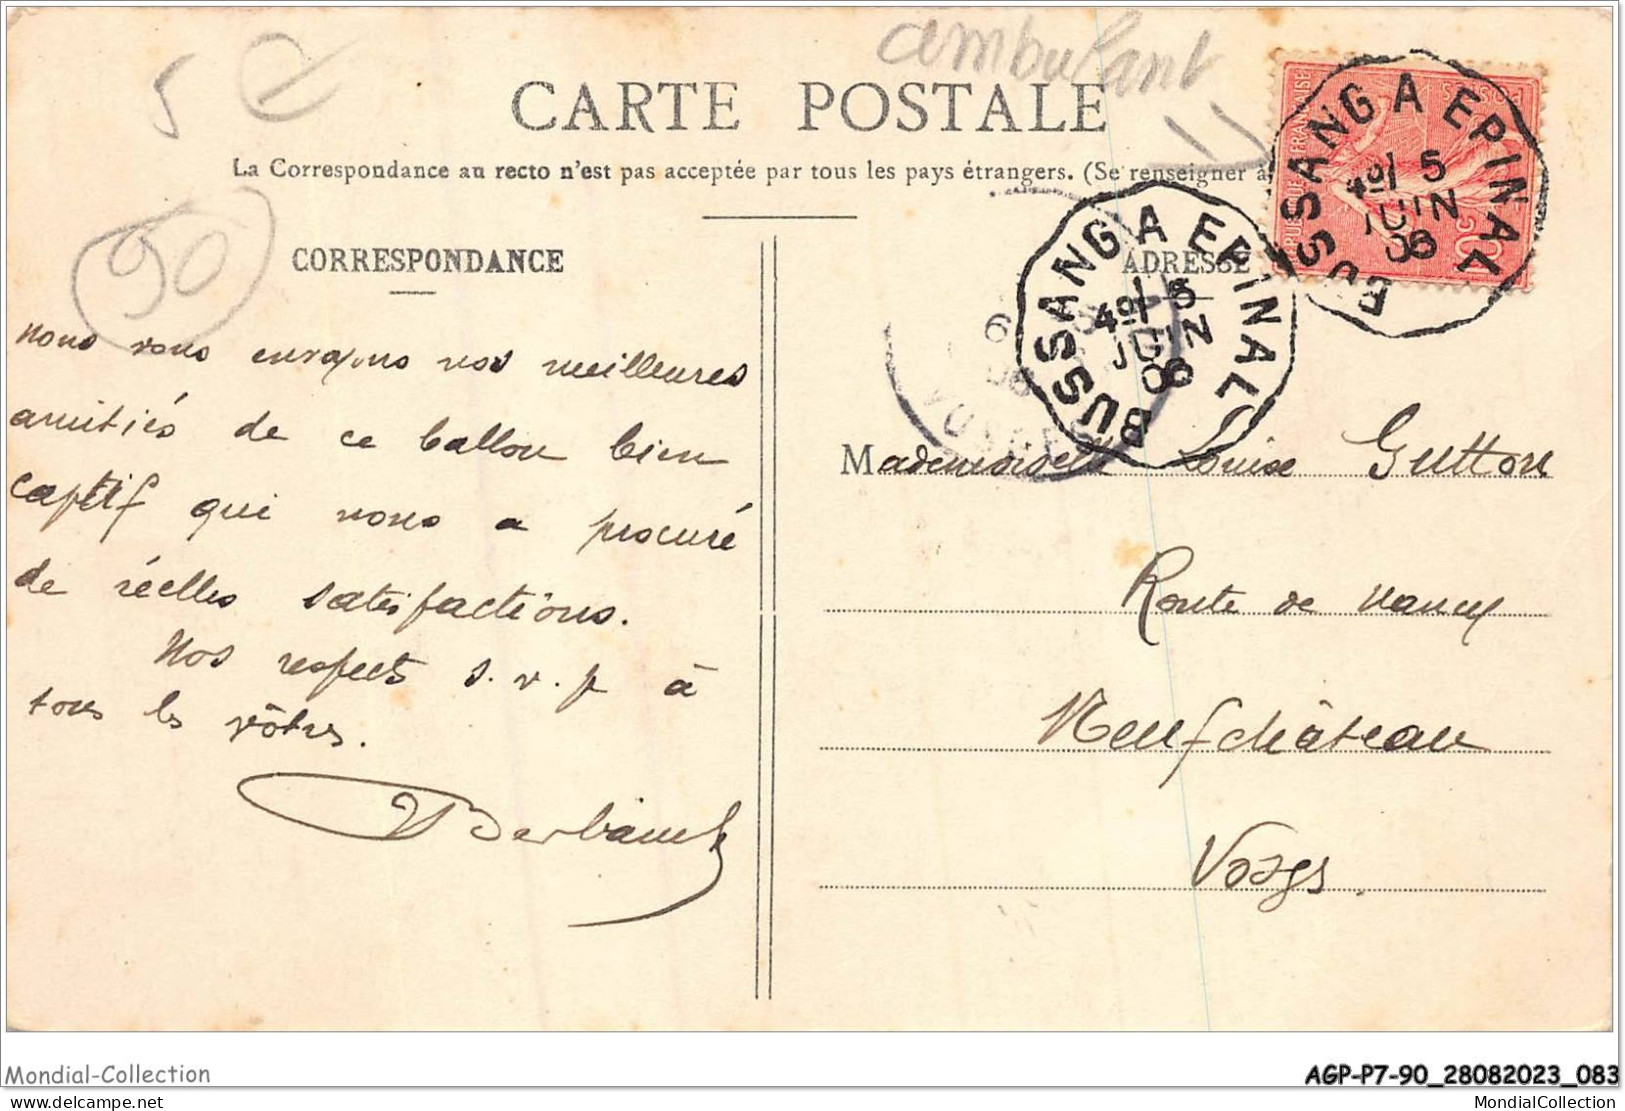 ambulant
5 €
CARTE POSTALE
La Correspondance au recto n'est pas acceptée par tous les pays étrangers. (Se renseigner à
90
CORRESPONDANCE
ADRESSE
BUSSANG A EPINAL
5
JUIN
06
BUSSANG A EPINAL
5
JUIN
06
6
VOSGES
RÉPUBLIQUE FRANÇAISE
POSTES
10c
nous vous envoyons nos meilleures
amitiés de ce ballon bien
captif qui nous a procuré
de réelles satisfactions.
Nos respects s.v.p à
tous les vôtres.
Mademoiselle Louise Gutton
Route de Nancy
Neufchâteau
Vosges.
Mondial-Collection
AGP-P7-90_28082023_083
delcampe.net
MondialCollection